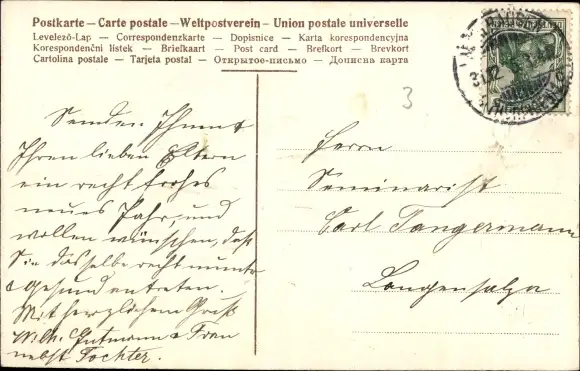 Postkarte – Carte postale – Weltpostverein – Union postale universelle
Levelező-Lap — Correspondenzkarte — Dopisnice — Karta korespondencyjna
Korespondenční lístek — Briefkaart — Post card — Brefkort — Brevkort
Cartolina postale — Tarjeta postal — Открытое-письмо — Дописна карта
3
31.12
Senden Ihnen &
Ihren lieben Eltern
ein recht frohes
neues Jahr, und
wollen wünschen, daß
Sie dasselbe recht munter
& gesund antreten.
Mit herzlichem Gruß
Wilh. Gutmann & Frau
nebst Tochter.
Herrn
Seminarist
Carl Tangermann
Langensalza